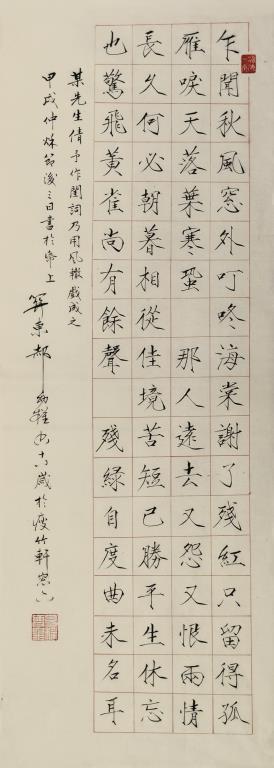 乍聞秋風窓外叮咚海棠謝了殘紅只留得孤
雁唳天落葉寒蛩 那人遠去又怨又恨兩情
長久何必朝暮相從佳境苦短已勝平生休忘
也驚飛黃雀尚有餘聲 殘綠自度曲未名耳
某先生倩予作閨詞乃用風報戲成之
甲戌仲秋節後三日書於帝上